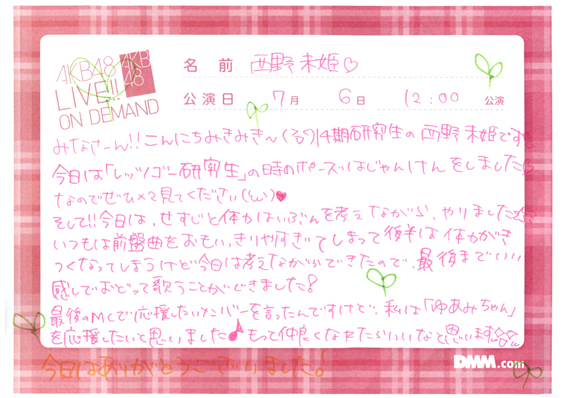 AKB48
LIVE!!
ON DEMAND
AKB
48
名前 西野未姫♡
公演日 7月 6日 12:00 公演
みなさーん!!こんにちみきみき〜 14期研究生の西野未姫です
今日は「レッツゴー研究生」の時のポーズはじゃんけんをしました
なのでぜひ×2見てください ♥
そして!!今日は、せすじと体力はいぶんを考えながら、やりました
いつもは前盤曲をおもいっきりやりすぎてしまって後半は体力がき
つくなってしまうけど今日は考えながらできたので、最後までいい
感じでおどって歌うことができました!
最後のMCで応援したいメンバーを言ったんですけど、私は「ゆあみちゃん」
を応援したいと思いました♪もっと仲良くなれたらいいなと思います
今日はありがとうございました!
DMM.com